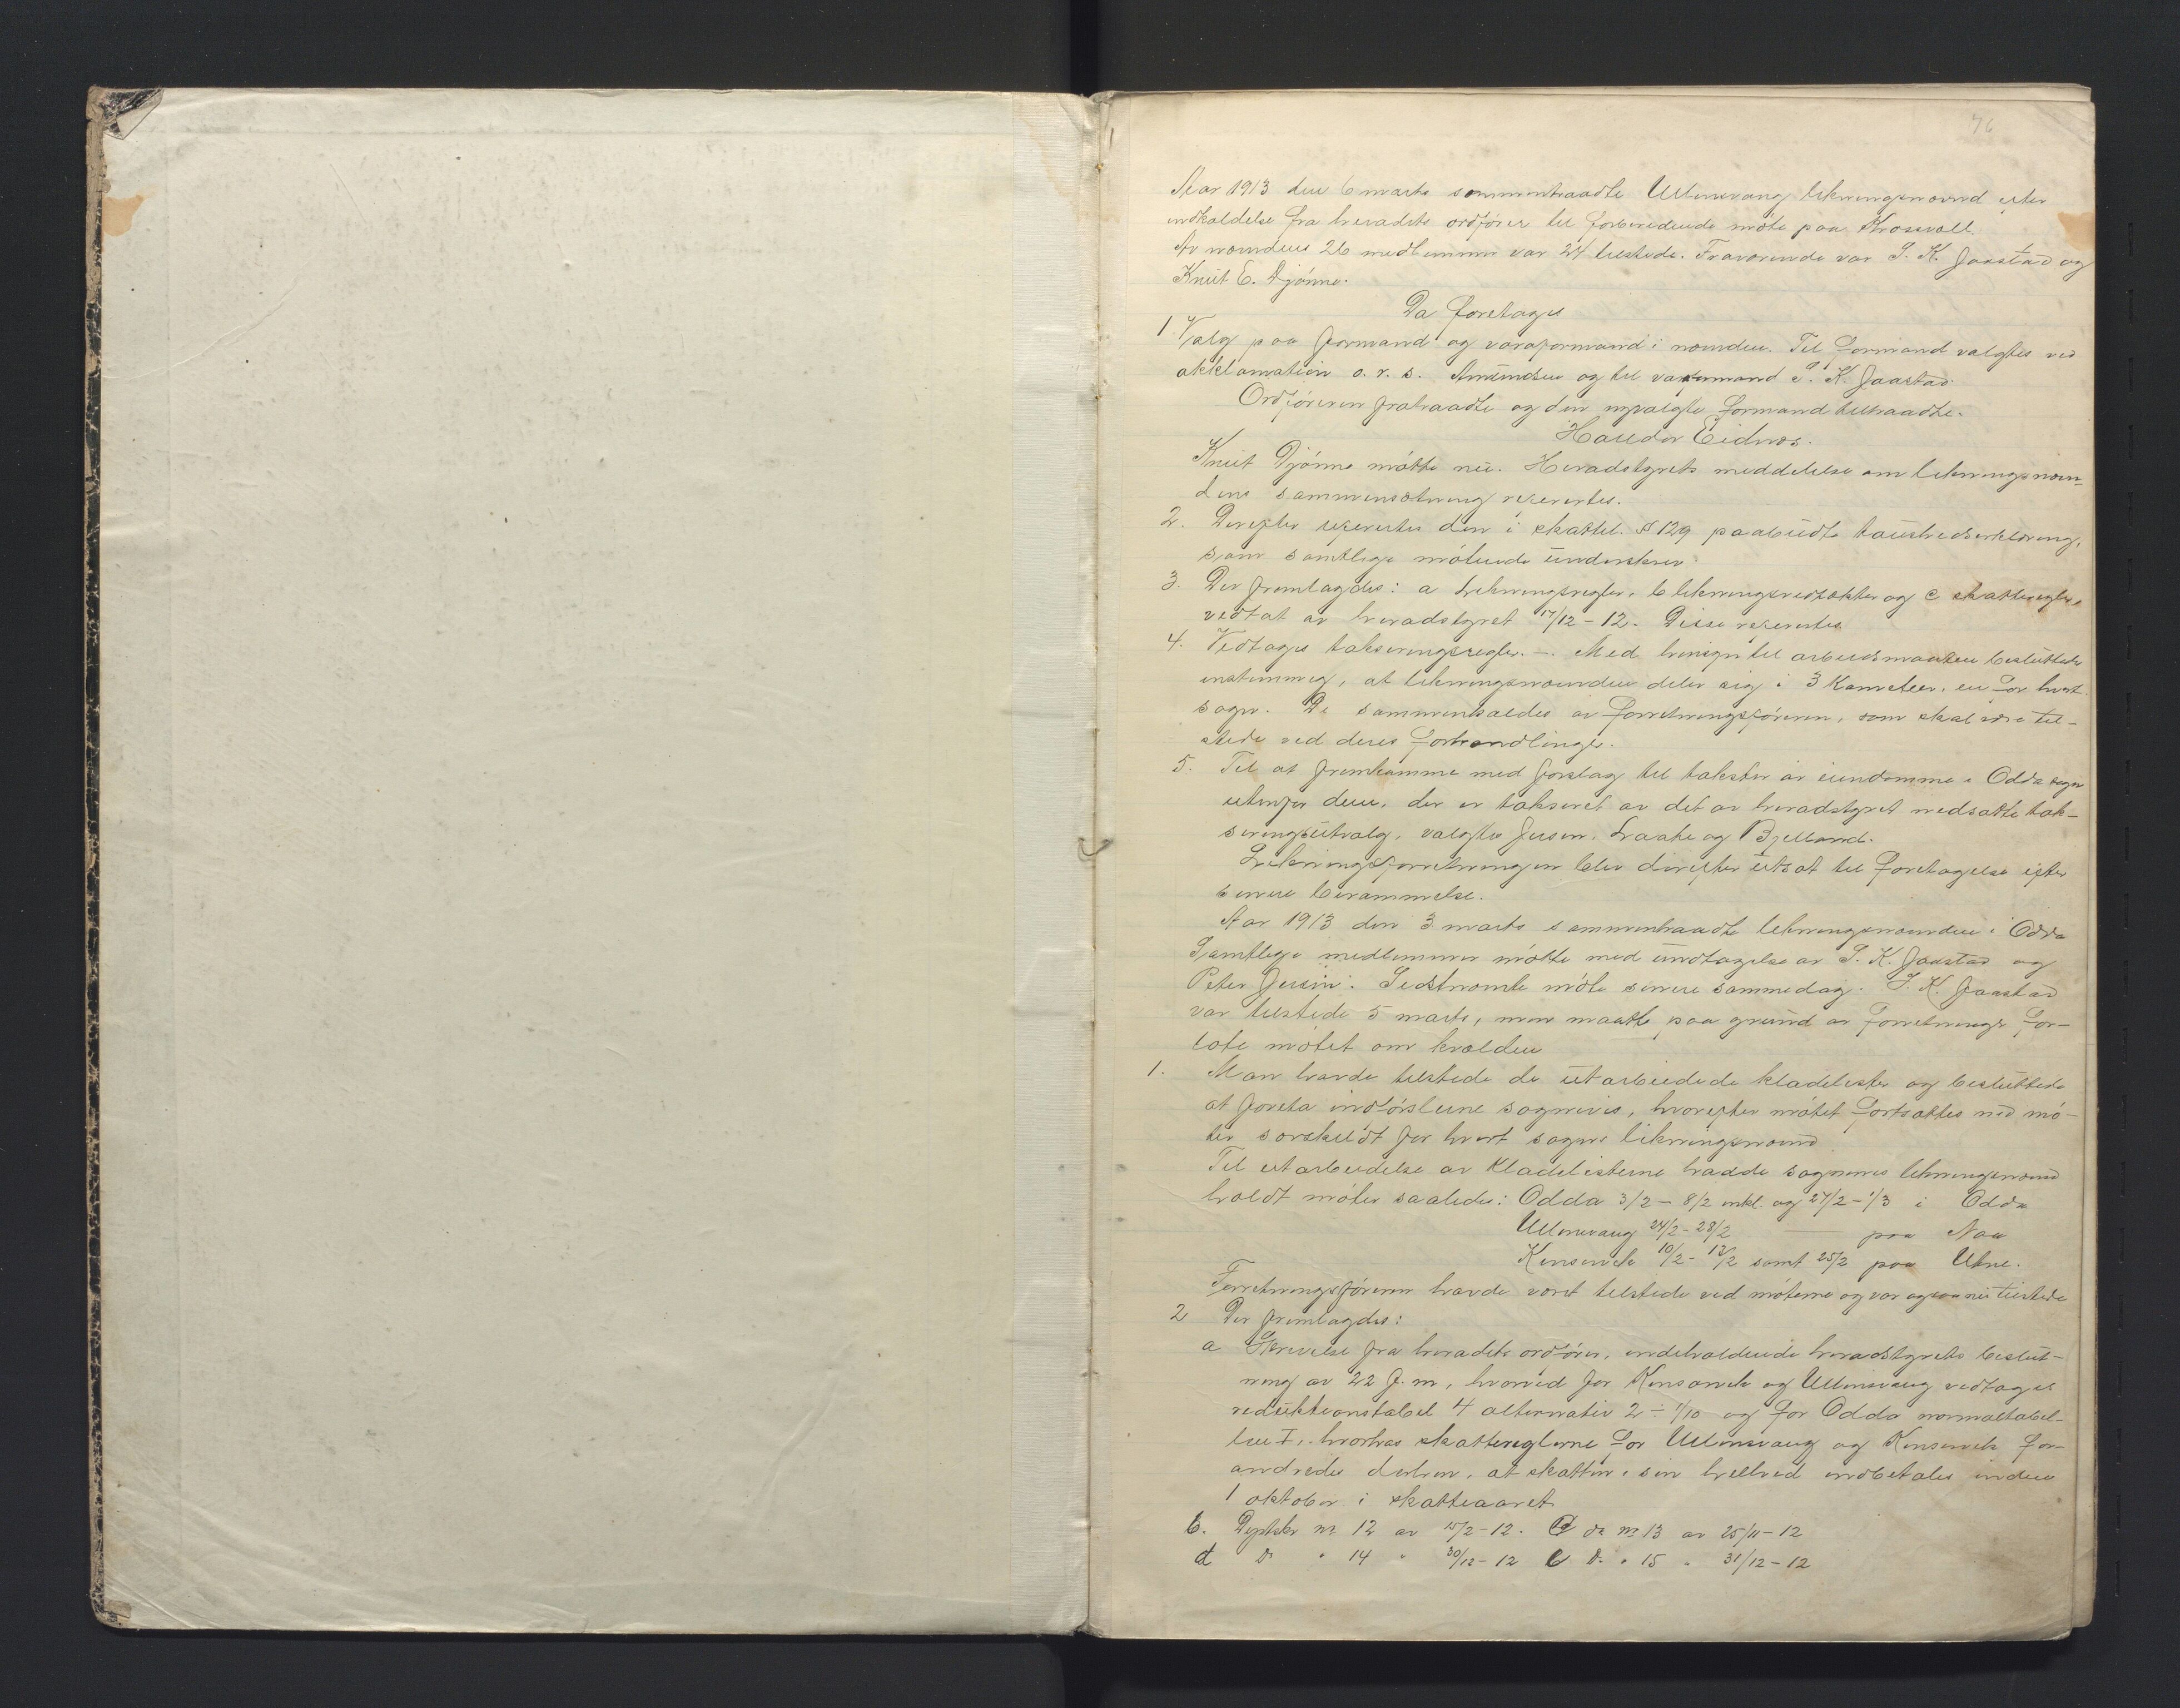 76
Aar 1913 den 6 marts sammentraadte Ullensvang likningsnævnd efter
indkaldelse fra heradets ordfører til forberedende møte paa Krossvoll.
Av nævndens 26 medlemmer var 24 tilstede. Fraværende var S. K. Jaastad og
Knut E. Djønne.
Da foretages
1 Valg paa formand og varaformand i nævnden. Til formand valgtes ved
akklamation o. r. s. Amundsen og til varaformand S. K. Jaastad.
Ordføreren fratraadte og den nyvalgte formand tiltraadte.
Haldor Eidnes.
Knut Djønne møtte nu. Heradstyrets meddelelse om likningsnævn-
dens sammensætning refertes.
2. Derefter refertes den i skattel. § 129 paabudte taushedserklæring,
som samtlige møtende underskrev.
3. Der fremlagdes: a likningsregler, b likningsvedtækter og c skatteregler,
vedtat av heradstyret 17/12-12. Disse refertes
4. Vedtages takseringsregler. -. Med hensyn til arbeidsmaaten besluttedes
enstemmig, at likningsnævnden deler sig i 3 Komiteer, en for hvert
sogn. De sammenkaldes av forretningsføreren, som skal være til-
stede ved deres forhandlinger.
5. Til at fremkomme med forslag til takster av eiendomme i Odda sogn
utenfor dem, der er takseret av det av heradstyret nedsatte tak-
seringsutvalg, valgtes Jusen, Kraake og Bjelland.
Likningsforretningen blev derefter utsat til foretagelse efter
senere berammelse.
Aar 1913 den 3 marts sammentraadte likningsnævnden i Odda
Samtlige medlemmer møtte med undtagelse av S. K. Jaastad og
Peter Jusin. Sidstnævnte møtte senere samme dag. S. K. Jaastad
var tilstede 5 marts, men maatte paa grund av forretninger for-
late møtet om kvelden
1. Man havde tilstede de utarbeidede kladelister og besluttede
at foreta indførslerne sognevis, hvorefter møtet fortsattes med mø-
ter særskildt for hvert sogns likningsnævnd
Til utarbeidelse av kladelisterne hadde sognenes likningsnævnd
holdt møter saaledes: Odda 3/2 - 8/2 inkl. og 27/2 - 1/3 i Odda
Ullensvang 24/2 - 28/2 — paa Naa
Kinservik 10/2 - 13/2 samt 25/2 paa Utne.
Forretningsføreren havde været tilstede ved møterne og var ogsaa nu tilstede
2 Der fremlagdes:
a Skrivelse fra heradets ordfører, indeholdende heradstyrets beslut-
ning av 22 f. m., hvorved for Kinservik og Ullensvang vedtages
reduktionstabel 4 alternativ 2 ÷ 1/10 og for Odda normaltabel-
len I, hvorhos skattereglerne for Ullensvang og Kinservik for-
andredes derhen, at skatten i sin helhed indbetales inden
1 oktober i skatteaaret
b. Deptskr nr 12 av 15/2-12. C do nr 13 av 25/11-12
d Do " 14 " 30/12-12 e Do " 15 " 31/12-12